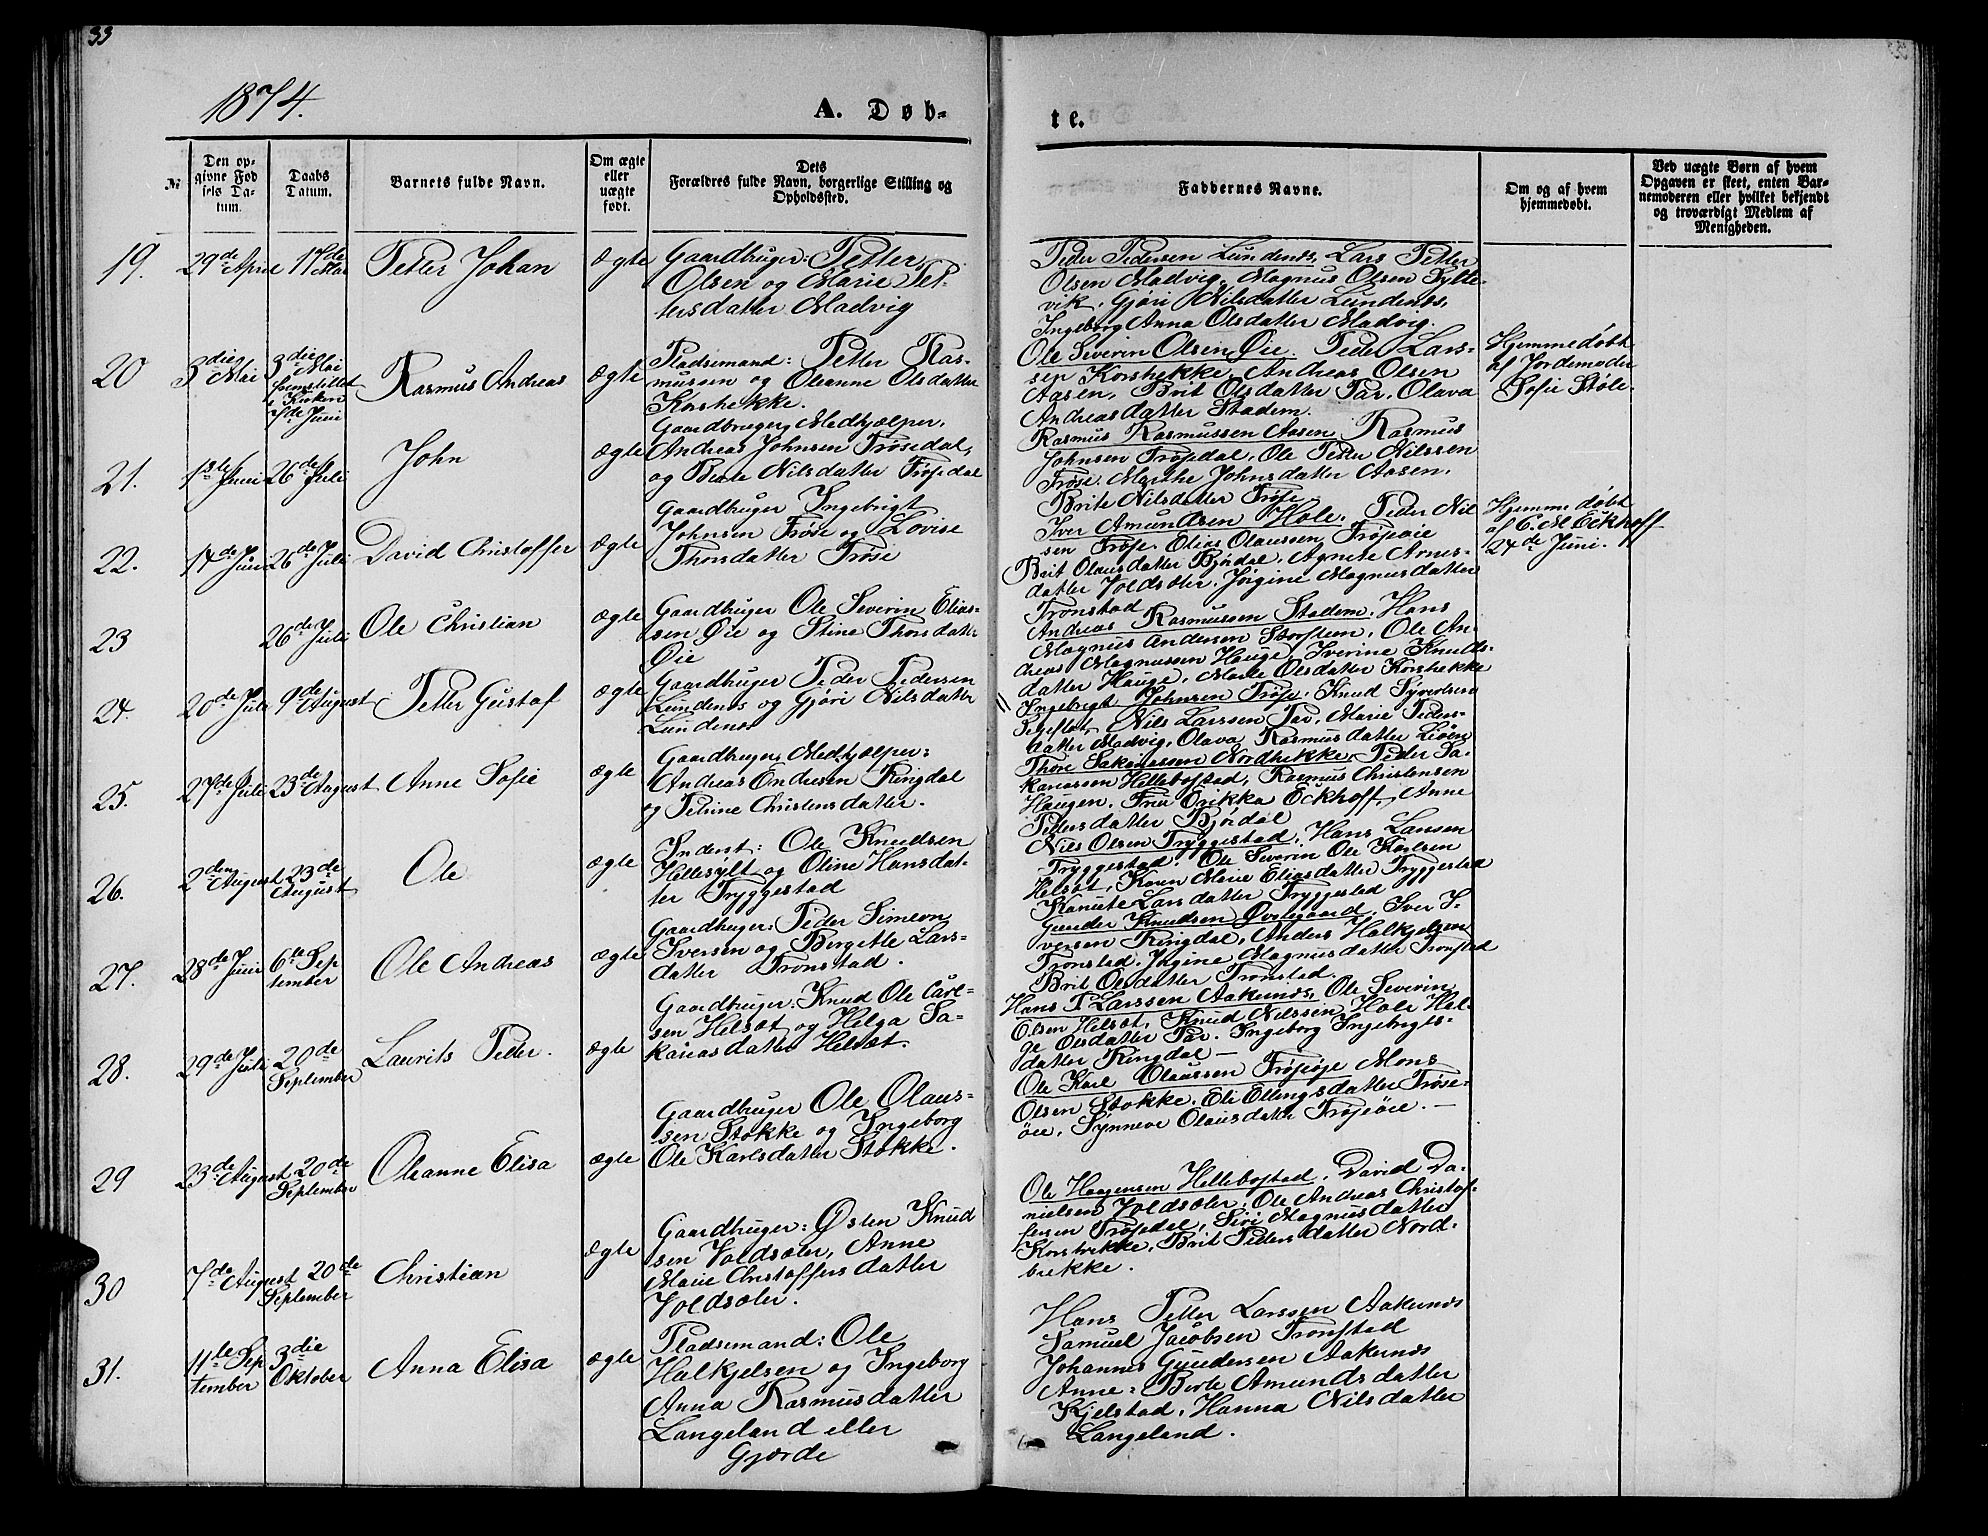 33
1874.
A. Døb-
te.
№
Den op-
givne Fød
sels Da-
tum.
Daabs
Datum.
Barnets fulde Navn.
Om ægte
eller
uægte
født.
Dets
Forældres fulde Navn, borgerlige Stilling og
Opholdssted.
Faddernes Navne.
Om og af hvem
hjemmedøbt.
Ved uægte Børn af hvem
Opgaven er skeet, enten Bar-
nemoderen eller hvilket bekjendt
og troværdigt Medlem af
Menigheden.
19. 29de April 17de Mai Petter Johan ægte
Gaardbruger: Petter
Olsen og Marie Pet-
tersdatter Madvig
Peder Pedersen Lundenes, Lars Petter
Olsen Madvig, Magnus Olsen Sylte-
vik. Gjøri Nilsdatter Lundenes,
Ingeborg Anna Olsdatter Madvig.
20 3die Mai
3die Mai
fremstillet
i Kirken
7de Juni
Rasmus Andreas ægte
Pladsemand: Petter Ras-
mussen og Oleanne Olsdatter
Korsbrekke.
Ole Severin Olsen Øie. Peder Lars-
sen Korsbrekke, Andreas Olsen
Aasen, Brit Olsdatter Par, Olava
Andreasdatter Stadem.
Hjemmedøbt
af Jordemoder
Sofie Støle.
21. 1ste Juni 26de Juli John ægte
Gaardbruger, Medhjælper,
Andreas Johnsen Frøsedal,
og Berte Nilsdatter Frøsdal
Rasmus Rasmussen Aasen, Rasmus
Johnsen Frøsdal, Ole Peder Nilssen
Frøse. Marthe Johnsdatter Aasen,
Brite Nilsdatter Frøse.
22. 14de Juni 26de Juli David Christoffer ægte
Gaardbruger Ingebrigt
Johnsen Frøse og Lovise
Thorsdatter Frøse
Iver Amundsen Hole. Peder Nil
sen Frøse. Elias Olaussen Frøseøie
Brit Olausdatter Bjørdal, Agnete Arnes-
datter Voldsæter. Jørgine Magnusdatter
Tronstad
Hjemmedøbt
af C. M Eckhoff
24de Juni.
23 26de Juli Ole Christian ægte
Gaardbruger Ole Severin Elias-
sen Øie og Stina Thorsdatter
Øie
Andreas Rasmussen Stadem, Hans
Magnus Andersen Storstein, Ole An-
dreas Magnussen Hauge, Iverine Knuds-
datter Hauge, Marte Olsdatter Korsbrekke
24. 20de Juli 9de August Petter Gustaf ægte
Gaardbruger Peder Pedersen
Lundenes og Gjøri Nilsdatter
Lundenes
Ingebrigt Johnsen Frøse, Knud Syvertsen
Nils Larssen Par, Marie Peders-
datter Madvig, Olava Rasmusdatter Liøen
25. 27de Juli 23de August Anne Sofie ægte
Gaardbruger, Medhjælper:
Andreas Endresen Ringdal
og Petrine Christensdatter.
Thore Sakariassen Nordbrekke, Peder Sa-
kariassen Hellebostad, Rasmus Christensen
Haugen. Frue Erikka Eckhoff, Anne
Pedersdatter Bjørdal
26. 2den August 23de
August
Ole ægte
Inderst: Ole Knudsen
Hellesylt og Oline Hansdat-
ter Tryggestad
Nils Olsen Tryggestad, Hans Larssen
Tryggestad, Ole Severin Ole Karlsen
Helset, Karen Marie Eliasdatter Tryggestad
Kanute Larsdatter Tryggestad
27. 28de Juni 6te Sep
tember
Ole Andreas ægte
Gaardbruger: Peder Simeon
Iversen og Bergitte Lars-
datter Tronstad.
Gunder Knudsen Øvstegaard. Iver I-
versen Ringdal, Anders Halkjelsen
Tronstad, Jørgine Magnusdatter Tronstad
Brit Olsdatter Tronstad.
28. 29de Juli 20de
September
Laurits Peder. ægte
Gaardbruger: Knud Ole Carl-
sen Helset og Helga Sa-
kariasdatter Helset.
Hans P Larssen Aaknes, Ole Severin
Olsen Helset, Knud Nilssen Hole Hel-
ge Olsdatter Par. Ingeborg Ingebrigts-
datter Ringdal —
29 23de August 20de
September
Oleanne Elisa ægte
Gaardbruger Ole Olaus-
sen Stokke og Ingeborg
Ole Karlsdatter Stokke.
Ole Karl Olaussen Frøsøie Mons
Olsen Stokke, Eli Ellingsdatter Frøse-
øie, Synneve Olausdatr Frøseøie. —
30 7de August 20de
September
Christian ægte
Gaardbruger: Østen Knud
sen Voldsæter, Anne
Marie Christoffersdatter
Voldsæter.
Ole Haagensen Hellebostad, David Da-
nielsen Voldsæter, Ole Andreas Christof-
fersen Frøsdal, Siri Magnusdatter
Korsbrekke, Brit Pedersdatter Nord-
brekke.
31. 11te Sep
tember
3die
Oktober
Anna Elisa ægte
Pladsemand: Ole
Halkjelsen og Ingeborg
Anna Rasmusdatter
Langeland eller
Gjærde
Hans Petter Larssen Aaknes
Samuel Jacobsen Tronstad
Johannes Gundersen Aaknes
Anne-Berte Amundsdatter
Kjelstad, Hanna Nilsdatter
Langeland.